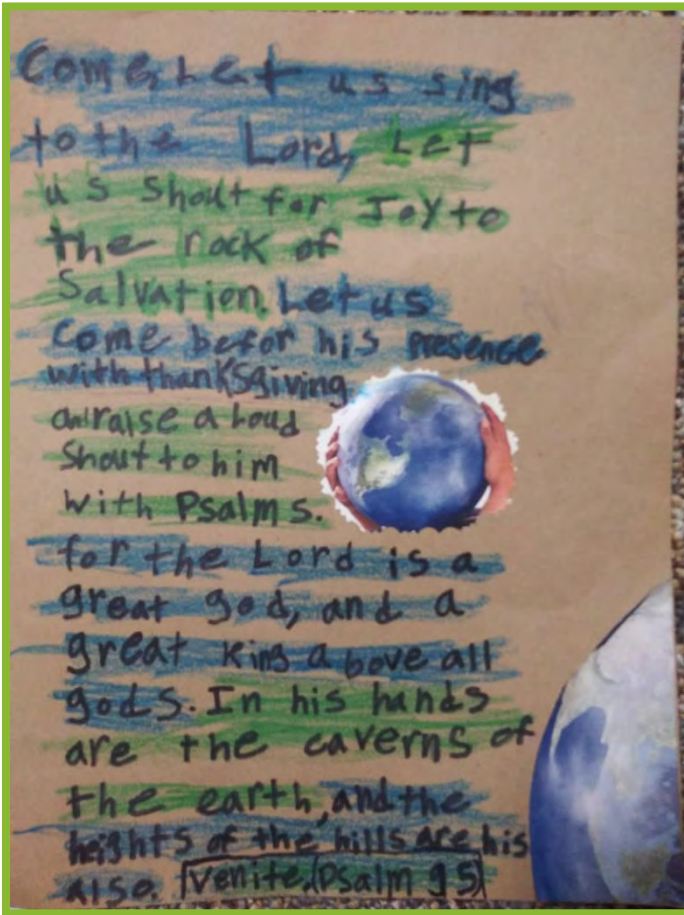 Come, Let us sing
to the Lord, Let
us Shout for Joy to
the rock of
Salvation. Let us
Come befor his presence
with thanksgiving
and raise a Loud
Shout to him
with Psalms.
for the Lord is a
great god, and a
great King above all
gods. In his hands
are the caverns of
the earth, and the
heights of the hills are his
also. Venite. (Psalm 95)